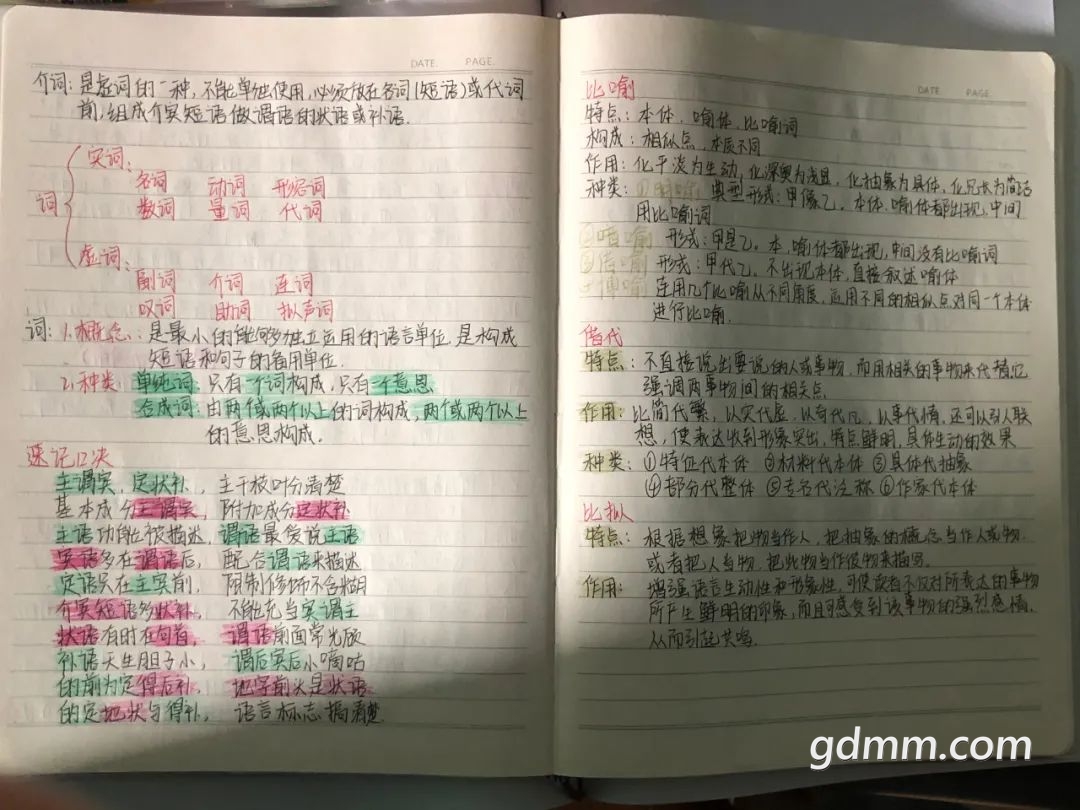 DATE. PAGE.
介词：是虚词的一种，不能单独使用，必须放在名词（短语）或代词
前，组成介宾短语做谓语的状语或补语．
词
实词：
名词 动词 形容词
数词 量词 代词
虚词：
副词 介词 连词
叹词 助词 拟声词
词：1.概念：是最小的能够独立运用的语言单位，是构成
短语和句子的备用单位．
2.种类：单纯词：只有一个词构成，只有一个意思
合成词：由两个或两个以上的词构成，两个或两个以上
的意思构成．
速记口决
主谓宾，定状补，主干枝叶分清楚
基本成分主谓宾，附加成分定状补
主语功能被描述，谓语最爱说主语
宾语多在谓语后，配合谓语来描述
定语只在主宾前，限制修饰不含糊
介宾短语多状补，不能充当宾谓主
状语有时在句首，谓语前面常光顾
补语天生胆子小，谓后宾后小嘀咕
的前为定得后补，地字前头是状语
的定地状与得补，语言标志搞清楚
DATE PAGE.
比喻
特点：本体，喻体，比喻词
构成：相似点，本质不同
作用：化平淡为生动，化深奥为浅显，化抽象为具体，化冗长为简洁
种类：①明喻 典型形式：甲像乙．本体、喻体都出现，中间
用比喻词
②暗喻 形式：甲是乙．本，喻体都出现，中间没有比喻词
③借喻 形式：甲代乙．不出现本体，直接叙述喻体
④博喻 连用几个比喻从不同角度，运用不同的相似点对同一个本体
进行比喻．
借代
特点：不直接说出要说的人或事物，而用相关的事物来代替它
强调两事物间的相关点
作用：以简代繁，以实代虚，以奇代凡，以事代情，还可以引人联
想，使表达收到形象突出，特点鲜明，具体生动的效果
种类：①特征代本体 ②材料代本体 ③具体代抽象
④部分代整体 ⑤专名代泛称 ⑥作家代本体
比拟
特点：根据想象把物当作人，把抽象的概念当作人或物．
或者把人当物，把此物当作彼物来描写．
作用：增强语言生动性和形象性，可使读者不仅对所表达的事物
所产生鲜明的印象，而且可感受到该事物的强烈感情，
从而引起共鸣．
gdmm.com